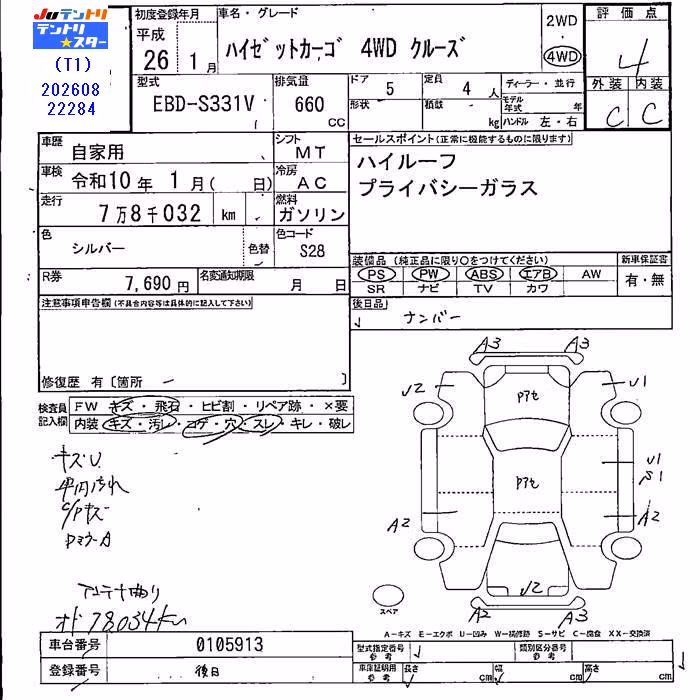 Juテントリ
テントリ★スター
(T1)
202608
22284
初度登録年月
平成
26 1月
車名・グレード
ハイゼットカーゴ 4WD クルーズ
2WD
4WD
評価点
4
外装 内装
C C
型式
EBD-S331V
排気量
660
CC
ドア 5
形状
定員 4 人
積載 kg
ディーラー・並行
モデル年式 年
ハンドル 左・右
車歴 自家用
シフト MT
車検 令和10年 1月( 日)
冷房 AC
走行 7万8千032 km
燃料 ガソリン
色 シルバー
色替
色コード S28
R券 7,690円
名変通知期限 月 日
セールスポイント(正常に機能するものに限ります)
ハイルーフ
プライバシーガラス
装備品(純正品に限り○をつけてください)
新車保証書
PS PW ABS エアB AW
SR ナビ TV カワ
有・無
後日品
ナンバー
注意事項申告欄(不具合内容等は具体的に記入して下さい)
修復歴 有〔箇所 ー 〕
検査員記入欄
FW キズ・飛石・ヒビ割・リペア跡・×要
内装 キズ・汚レ・コゲ・穴・スレ・キレ・破レ
キズU
C/Pキズ
DミラーA
オド78034km
A3 A3
U2 U1
Pアセ
Pアセ
U1
S1
A2 A2
U2
A2 A3
スペア
A-キズ E-エクボ U-凹み W-補修跡 S-サビ C-腐食 XX-交換済
車台番号 0105913
登録番号 後日
型式指定番号 参考
類別区分番号 参考
車庫証明用 参考
長さ cm 幅 cm 高さ cm